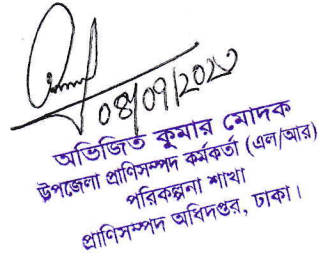 08/09/2020
অভিজিত কুমার মোদক
উপজেলা প্রাণিসম্পদ কর্মকর্তা (এল/আর)
পরিকল্পনা শাখা
প্রাণিসম্পদ অধিদপ্তর, ঢাকা।